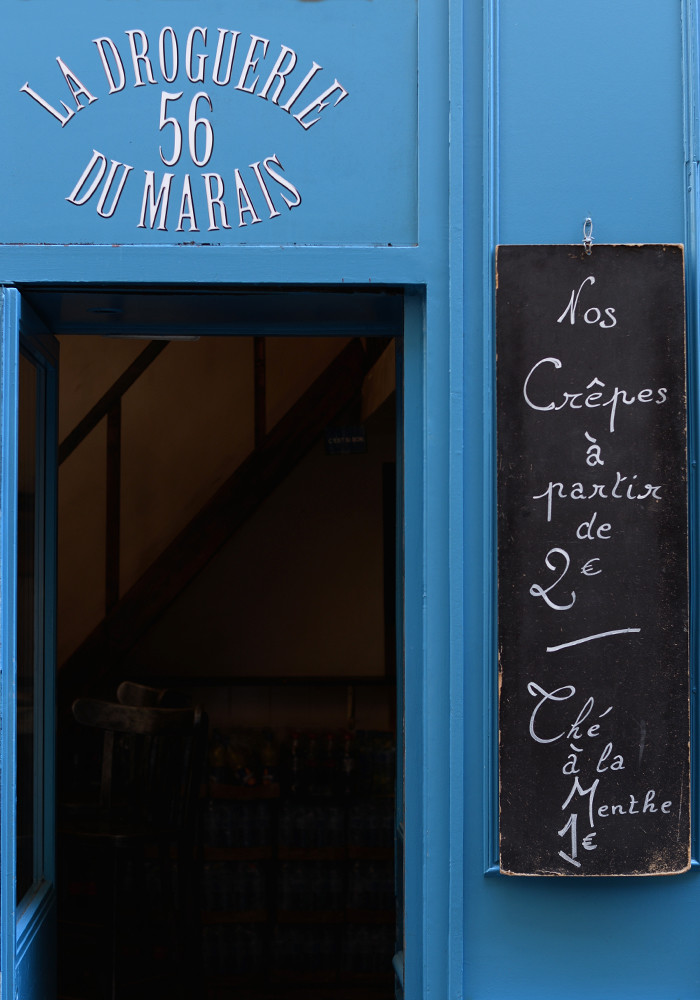 LA DROGUERIE
56
DU MARAIS
Nos
Crêpes
à
partir
de
2€
Thé
à la
Menthe
1€